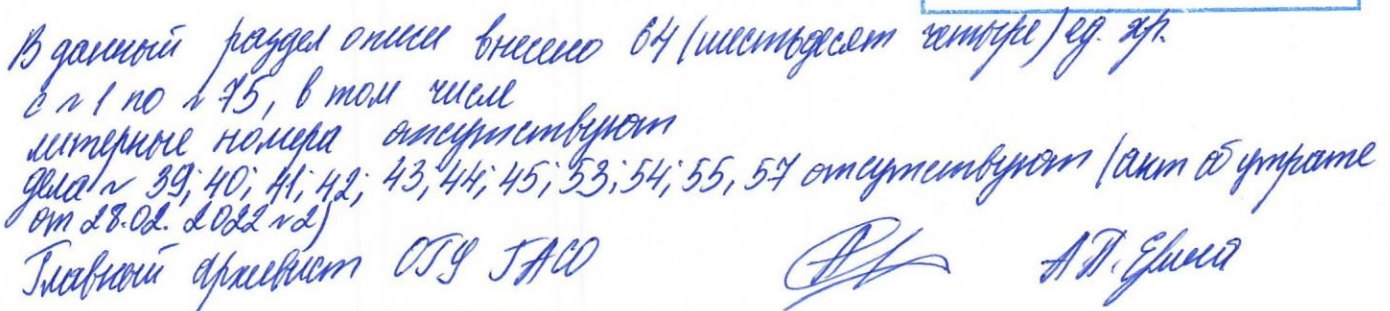 В данный раздел описи внесено 64 (шестьдесят четыре) ед. хр.
с № 1 по № 75, в том числе
литерные номера отсутствуют
дела № 39; 40; 41; 42; 43; 44; 45; 53; 54; 55, 57 отсутствуют (акт об утрате
от 28.02.2022 № 2)
Главный архивист ОГУ ГАСО А.П.